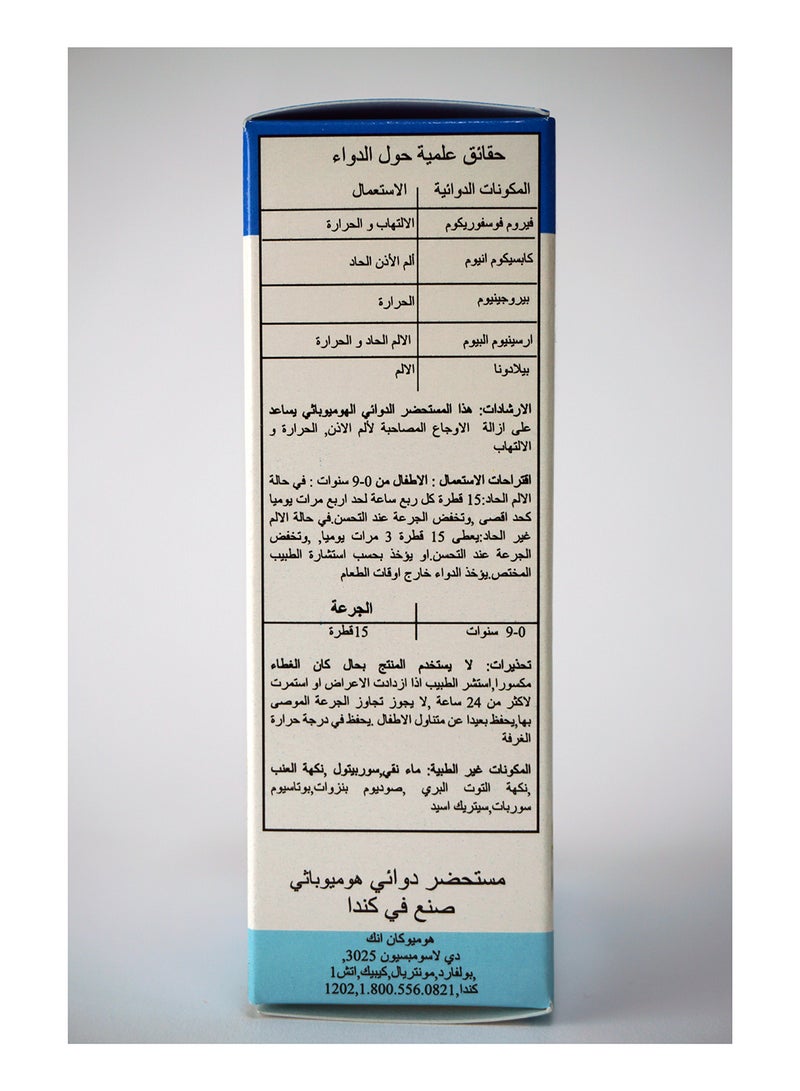 حقائق علمية حول الدواء
المكونات الدوائية الاستعمال
فيروم فوسفوريكوم الالتهاب و الحرارة
كابسيكوم انيوم ألم الأذن الحاد
بيروجينيوم الحرارة
ارسينيوم البيوم الالم الحاد و الحرارة
بيلادونا الالم
الارشادات: هذا المستحضر الدوائي الهوميوباثي يساعد
على ازالة الاوجاع المصاحبة لألم الاذن, الحرارة و
الالتهاب
اقتراحات الاستعمال : الاطفال من 0-9 سنوات : في حالة
الالم الحاد:15 قطرة كل ربع ساعة لحد اربع مرات يوميا
كحد اقصى ,وتخفض الجرعة عند التحسن.في حالة الالم
غير الحاد:يعطى 15 قطرة 3 مرات يوميا, ,وتخفض
الجرعة عند التحسن.او يؤخذ بحسب استشارة الطبيب
المختص.يؤخذ الدواء خارج اوقات الطعام
الجرعة
0-9 سنوات 15قطرة
تحذيرات: لا يستخدم المنتج بحال كان الغطاء
مكسورا,استشر الطبيب اذا ازدادت الاعراض او استمرت
لاكثر من 24 ساعة ,لا يجوز تجاوز الجرعة الموصى
بها,يحفظ بعيدا عن متناول الاطفال .يحفظ في درجة حرارة
الغرفة
المكونات غير الطبية: ماء نقي,سوربيتول ,نكهة العنب
,نكهة التوت البري ,صوديوم بنزوات,بوتاسيوم
سوربات,سيتريك اسيد
مستحضر دوائي هوميوباثي
صنع في كندا
هوميوكان انك
دي لاسومبسيون 3025,
,بولفارد,مونتريال,كيبيك,اتش1
كندا,1202,1.800.556.0821